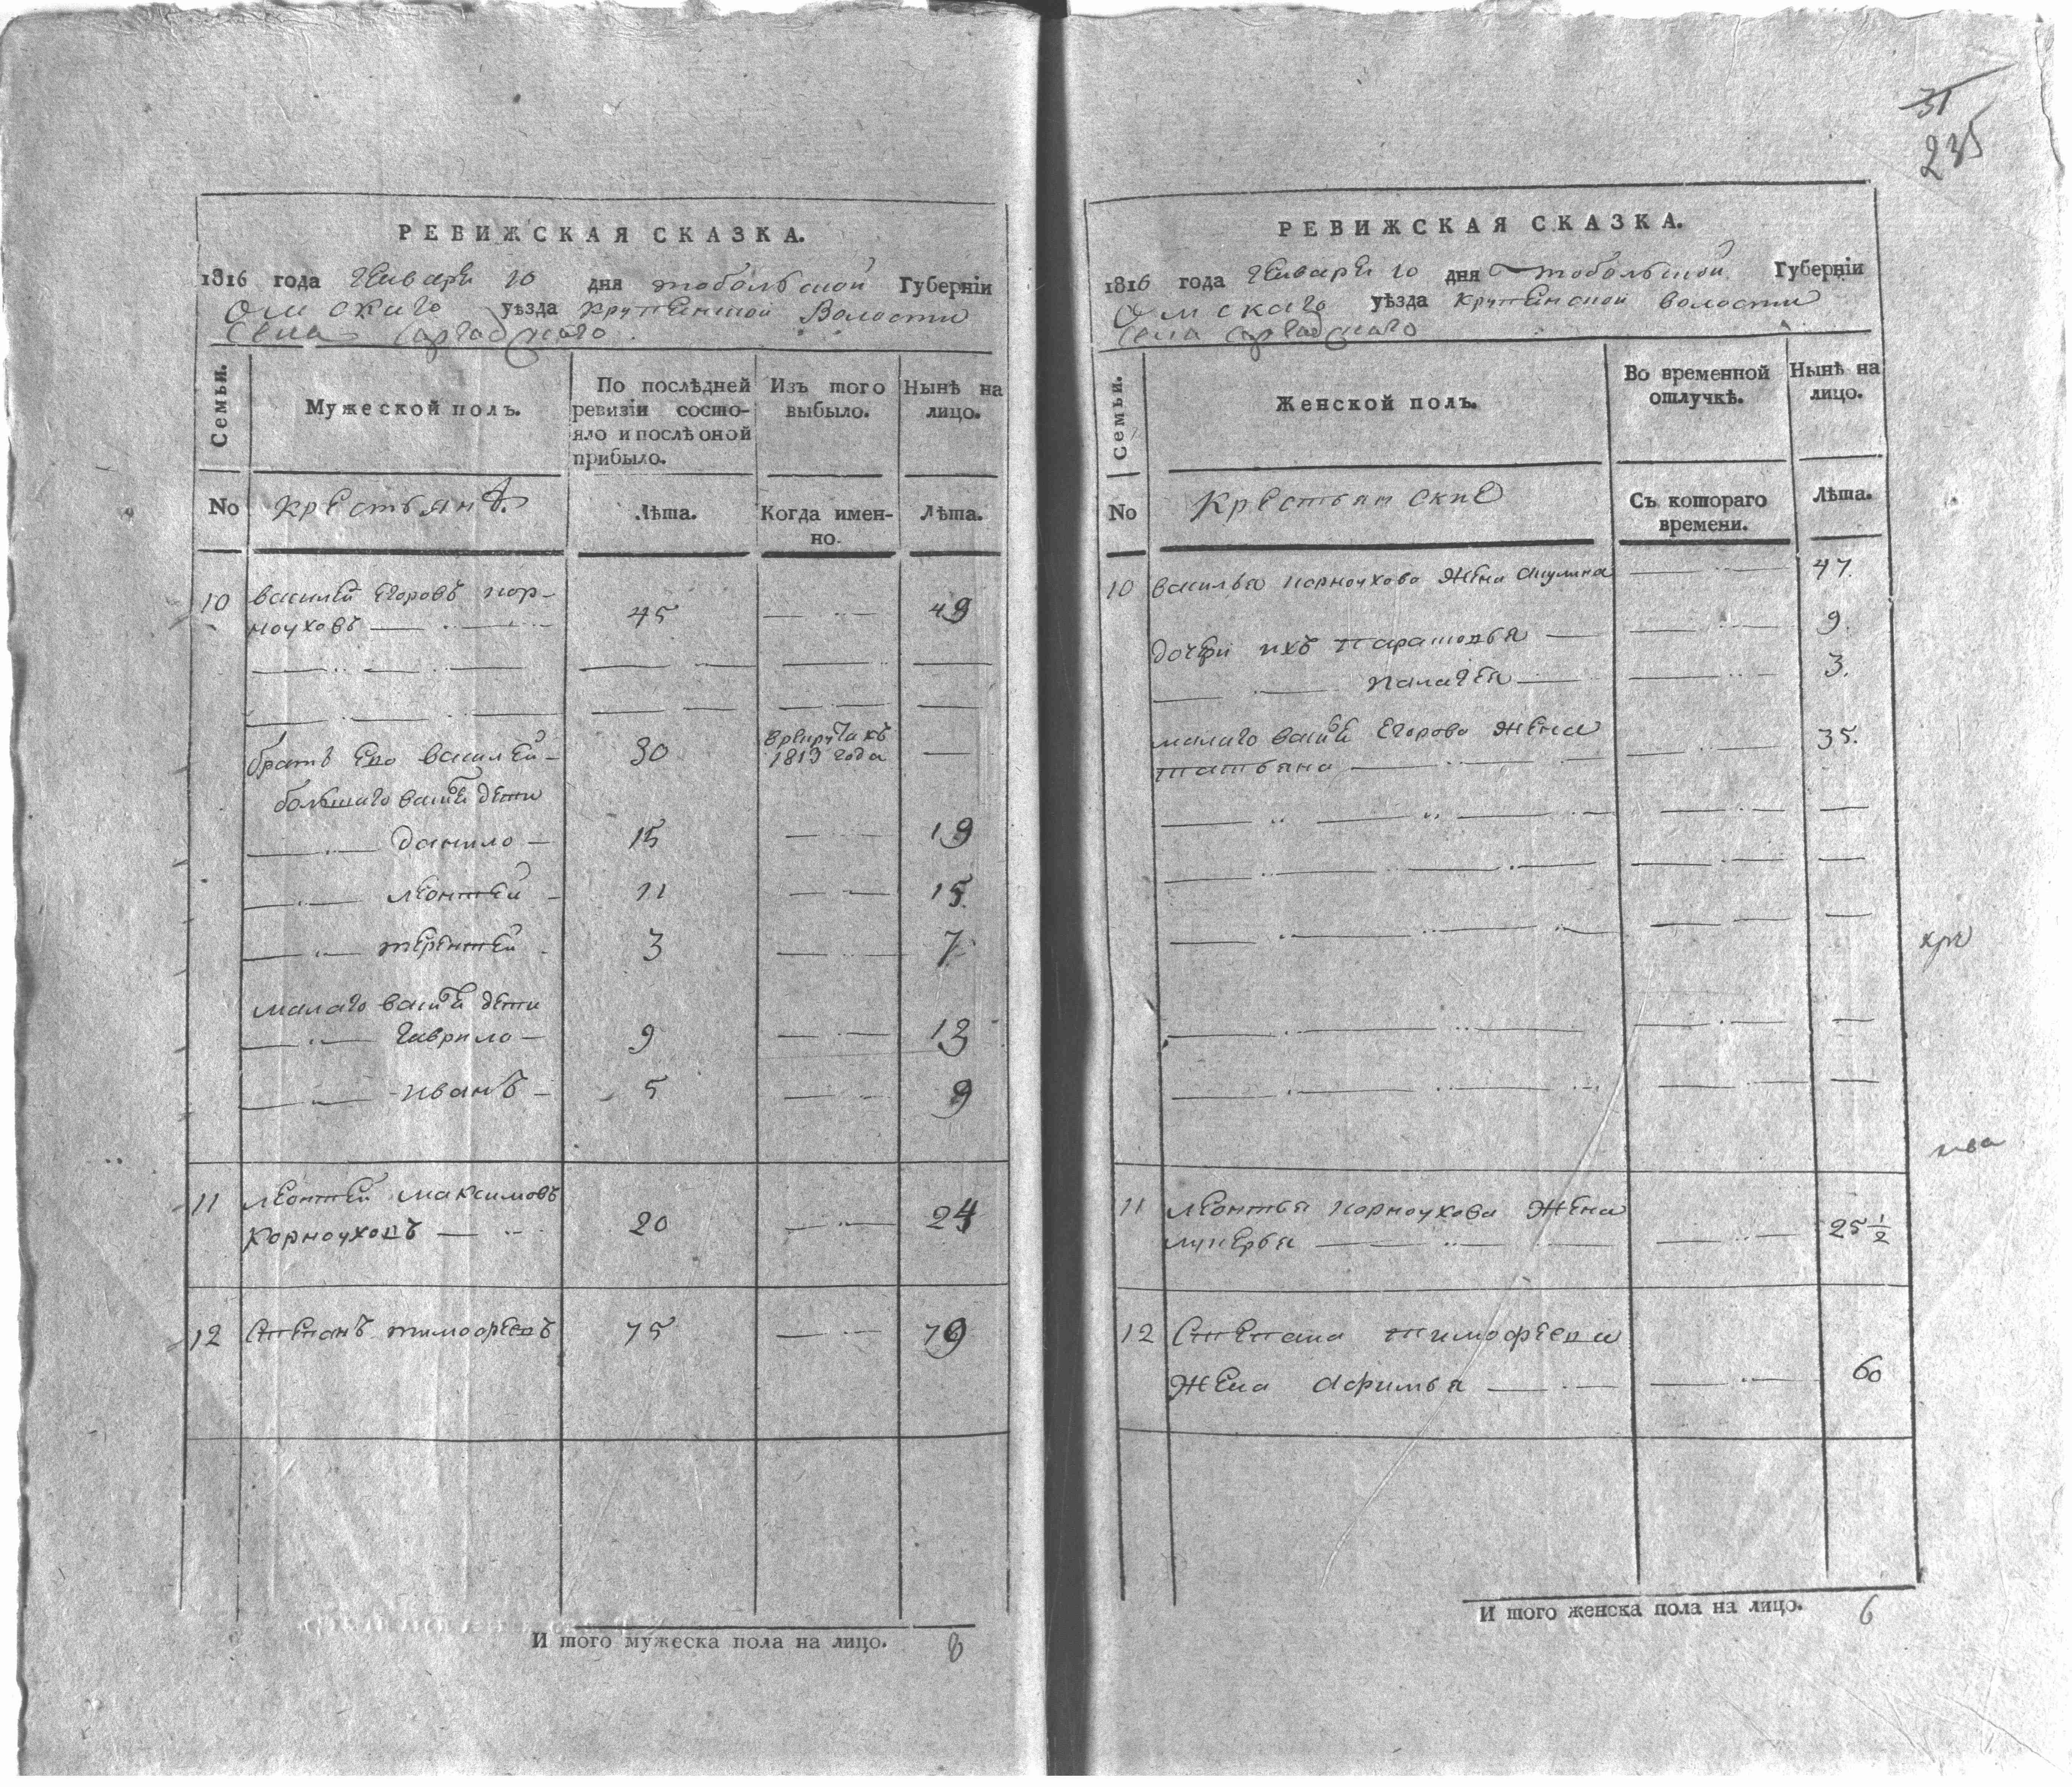 31
235
РЕВИЖСКАЯ СКАЗКА.
1816 года Генваря 10 дня тобольской Губернїи
Омскаго уѣзда крупенской Волости
Села
Семьи.
Мужеской полъ.
По послѣдней ревизїи состо-
яло и послѣ оной
прибыло.
Изъ того
выбыло.
Нынѣ на
лицо.
No крестьянѣ.
Лѣта.
Когда имен-
но.
Лѣта.
10 василей Егоровъ кор-
ноуховъ 45 49
братъ Ево василей 30 врекрутахъ
1813 года
большаго васильѣ дети
данило 15 19
леонтей 11 15
терентей 3 7
малаго васильѣ дети
гаврило 9 13
иванъ 5 9
11 леонтей максимовъ
корноуховъ 20 24
12 Степанъ тимофеевъ 75 79
И того мужеска пола на лицо. 8
РЕВИЖСКАЯ СКАЗКА.
1816 года Генваря 10 дня тобольской Губернїи
Омскаго уѣзда крупенской волости
Села
Семьи.
Женской полъ.
Во временной
отлучкѣ.
Нынѣ на
лицо.
No Крестьянские
Съ котораго
времени.
Лѣта.
10 василья корноухова жена акулина 47.
дочери ихъ парасковья 9.
палагея 3.
малаго Егорова жена
татьяна 35.
11 леонтья корноухова жена
лукерья 25 1/2
12 Степана тимофеева
жена афимья 60
И того женска пола на лицо. 6